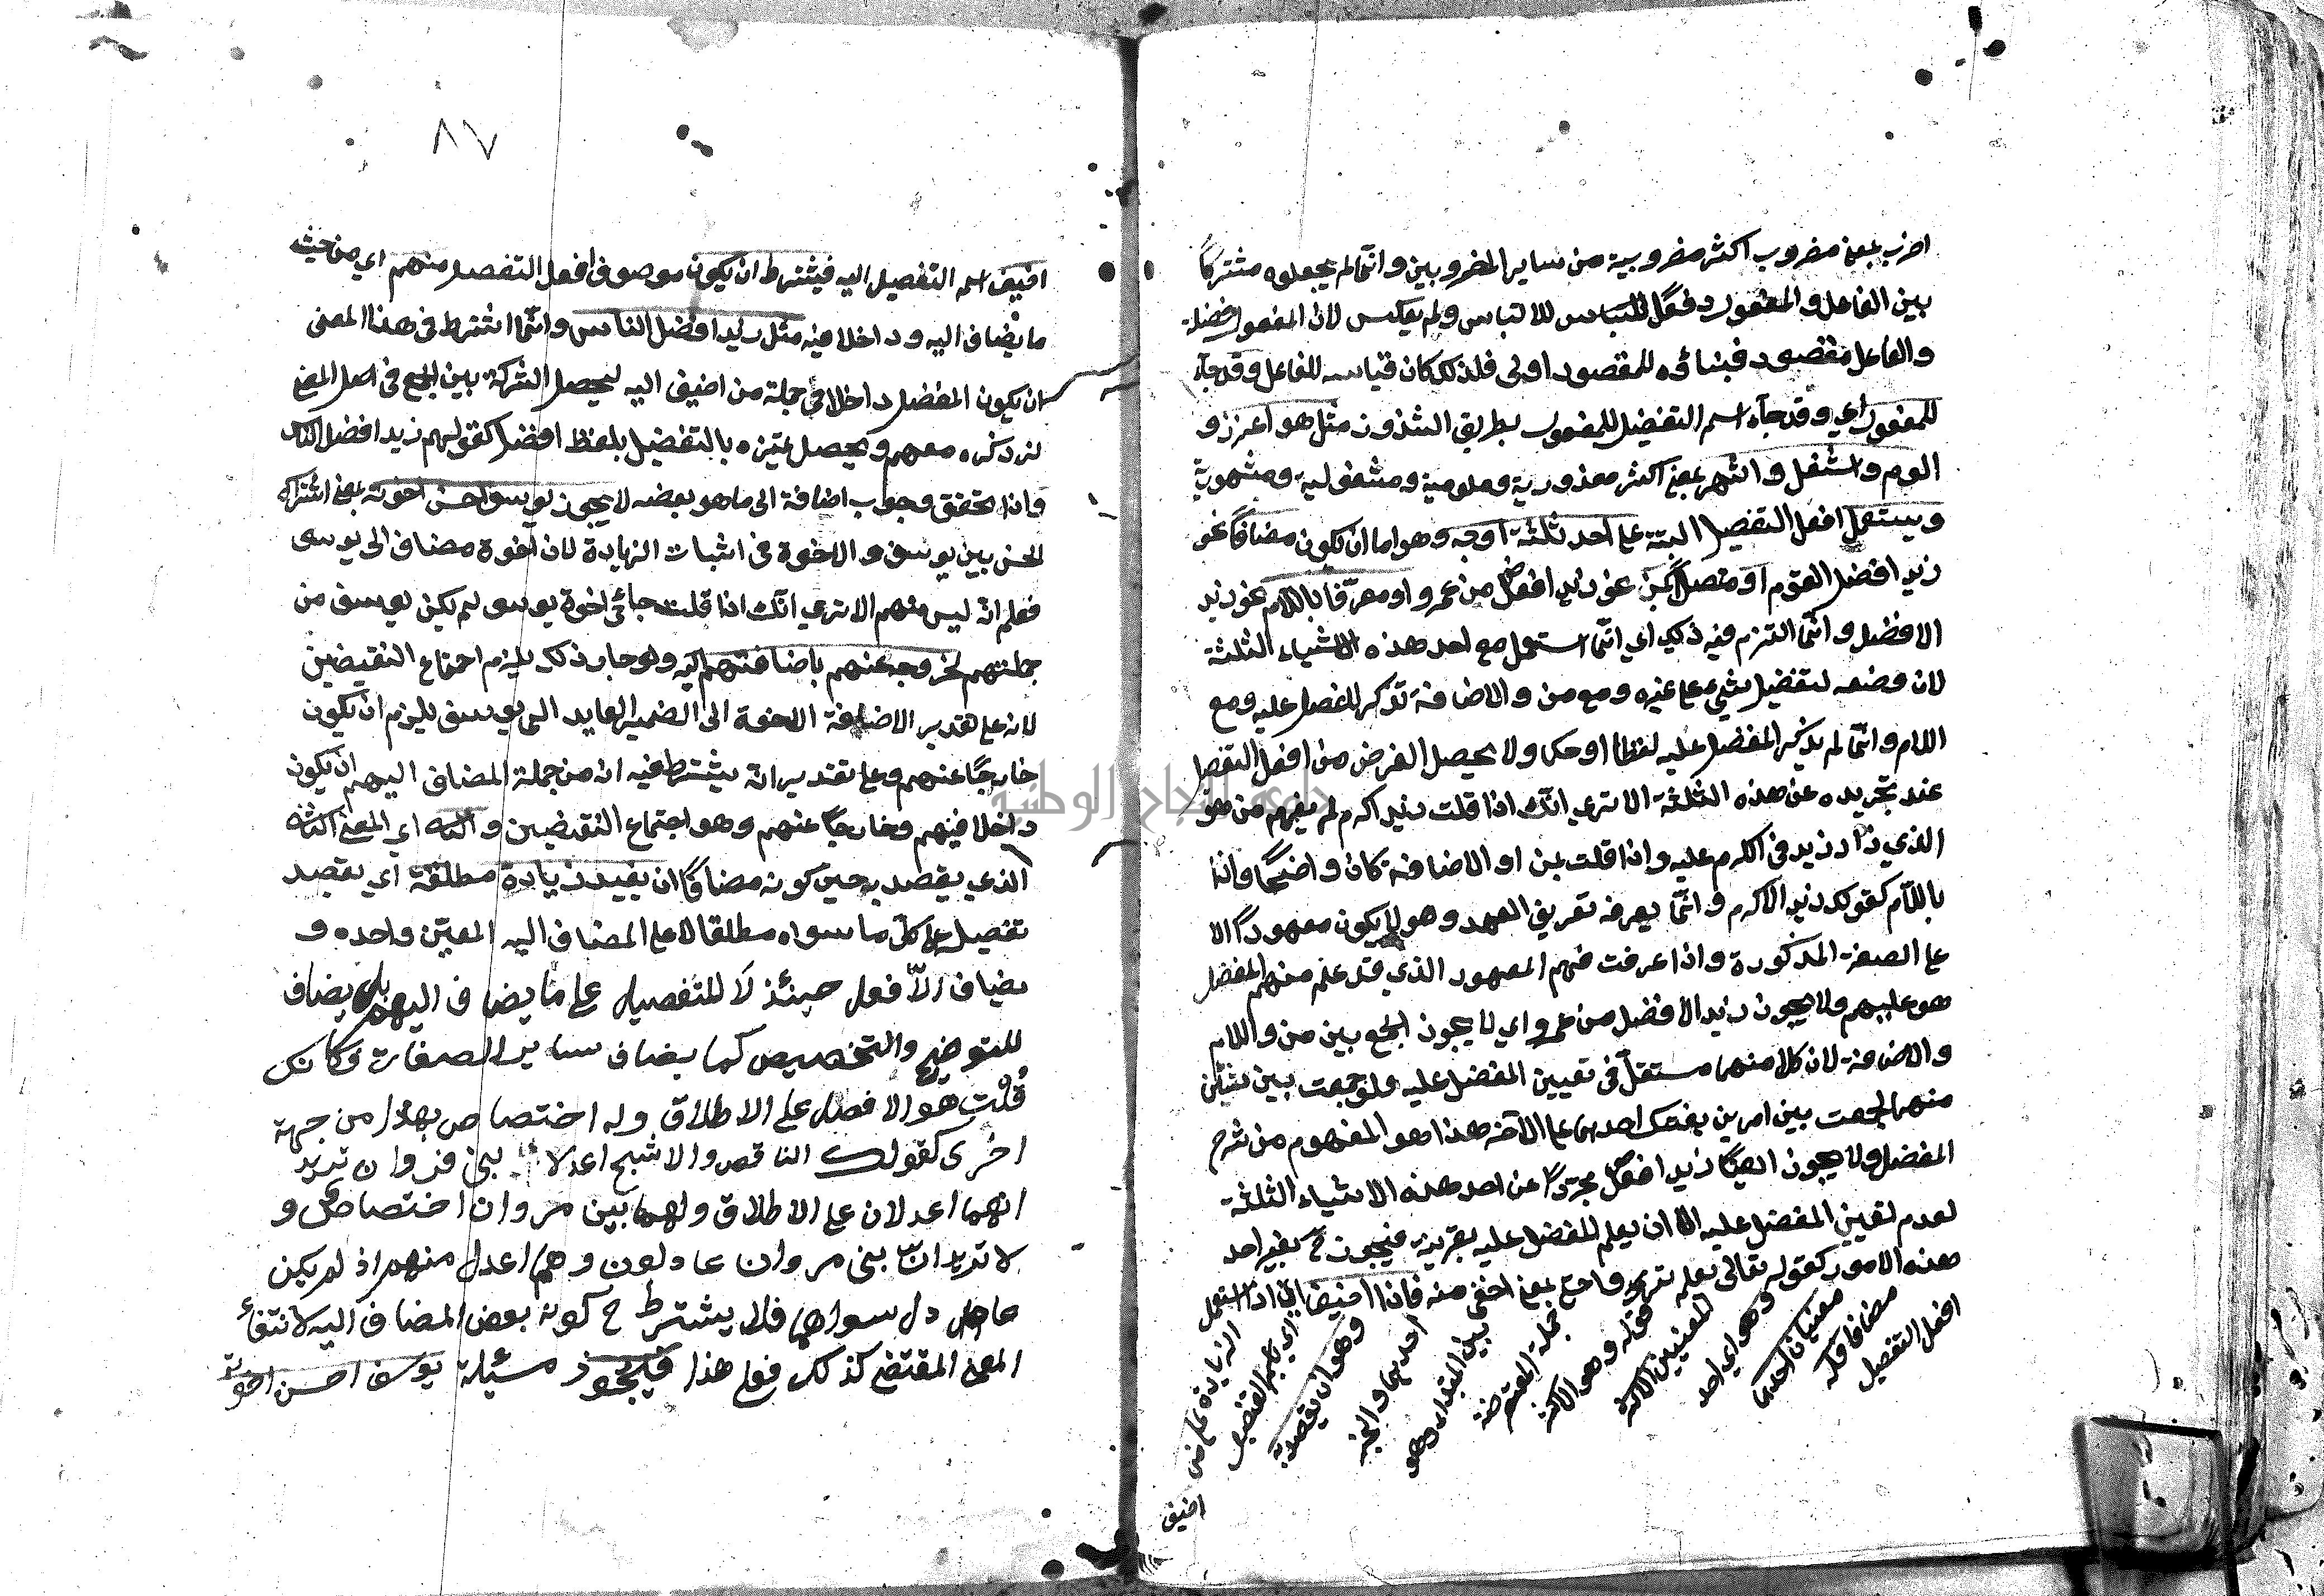 اضرب بمعنى مضروب اكثر مضروبية من ساير المضروبين وانما لم يجعلوه مشتركاً
بين الفاعل والمفعول دفعاً للالتباس ولم يعكس لان المفعول فضلة
والفاعل مقصود فبناؤه للمقصود اولى فلذلك كان قياسه للفاعل وقد جآء
للمفعول اي وقد جآء اسم التفضيل للمفعول بطريق الشذوذ مثل هو اعذر و
الوم واشغل واشهر بمعنى اكثر معذورية وملومية ومشغولية ومشهورية
ويستعمل افعل التفضيل البتة على احد ثلثة اوجه وهو اما ان يكون مضافاً نحو
زيد افضل القوم او متصلاً بمن نحو زيد افضل من عمرو او معرّفا باللام نحو زيد
الافضل وانما التزم فيه ذلك اي انما استعمل مع احد هذه الاشياء الثلثة
لان وضعه لتفضيل شئ على غيره ومع من والاضافة تذكر المفضل عليه ومع
اللام وانما لم يذكر المفضل عليه لفظا او حكما ولا يحصل الغرض من افعل التفضيل
عند تجريده عن هذه الثلثة الا تري انك اذا قلت زيد اكرم لم يفهم من هو
الذي زاد زيد في الكرم عليه واذا قلت بمن او الاضافة كان واضحاً واذا
باللام كقولك زيد الاكرم وانما يعرفه تعريف العهد وهو لا يكون معهوداً الا
على الصفة المذكورة واذا عرفت فهم المعهود الذي قد علم منهم المفضل
هو عليهم ولا يجوز زيد الافضل من عمرو اي لا يجوز الجمع بين من واللام
والاضافة لان كلا منهما مستقل في تعيين المفضل عليه فلو جمعت بين شيئين
منهما لجمعت بين امرين يغنيك احدهما على الآخر هذا هو المفهوم من شرح
المفصل ولا يجوز ايضاً زيد افضل مجرداً عن احد هذه الاشياء الثلثة
لعدم تعيين المفضل عليه الا ان يعلم المفضل عليه بقرينة فيجوز ح بغير احد
هذه الامور كقوله تعالى يعلم السر واخفى بمعنى اخفى منه فاذا اضيف اي اذا استعمل
افعل التفضيل
مضافا فله
معنيان احدهما
وهو اي احد
المعنيين الاكثر
قوله وهو الاكثر
جملة المعترضة
بين المبتدا وهو
احدهما والخبر
وهو ان يقصد به
اي باسم التفضيل
الزيادة على من
اضيف
٨٧
اضيف اسم التفضيل اليه فيشترط ان يكون موصوف افعل التفضيل منهم اي من حيث
ما يضاف اليه وداخلا فيه مثل زيد افضل الناس وانما اشترط في هذا المعنى
ان يكون المفضل داخلا في جملة من اضيف اليه ليحصل الشركة بين الجميع في اصل المعنى
لذكره معهم ويحصل تميزه بالتفضيل بلفظ افضل كقولهم زيد افضل الناس
واذا تحقق وجوب اضافة الى ما هو بعضه لا يجوز يوسف احسن اخوته بمعنى اشتراك
الحسن بين يوسف والاخوة في اثبات الزيادة لان اخوة مضاف الى يوسف
فعلم انه ليس منهم الا تري انك اذا قلت جائني اخوة يوسف لم يكن يوسف من
جملتهم لخروجه عنهم باضافتهم اليه ولو جاز ذلك يلزم اجتماع النقيضين
لانه على تقدير الاضافة الاخوة الى الضمير العايد الى يوسف يلزم ان يكون
خارجاً عنهم وعلى تقدير انه يشترط فيه انه من جملة المضاف اليهم ان يكون
داخلا فيهم وخارجاً عنهم وهو اجتماع النقيضين والثاني اي المعنى الثاني
الذي يقصد به حين كونه مضافاً ان يفيد زيادة مطلقة اي يقصد
تفضيله على كل ما سواه مطلقا لا على المضاف اليه المعين واحده و
يضاف الا فعل حينئذ لا للتفضيل على ما يضاف اليهم بل يضاف
للتوضيح والتخصيص كما يضاف ساير الصفات فكانك
قلت هو الافضل على الاطلاق وله اختصاص بهذا من جهة
اخرى كقولك الناقص والاشج اعدلا بني مروان تريد
انهما اعدلان على الاطلاق ولهما بين مروان اختصاص و
لا تريد ان بني مروان عادلون وهما اعدل منهم اذ لم يكن
عادل سواهما فلا يشترط ح كونه بعض المضاف اليه لانتفاء
المعنى المقتضي كذلك فعلى هذا فيجوز مسئلة يوسف احسن اخوته